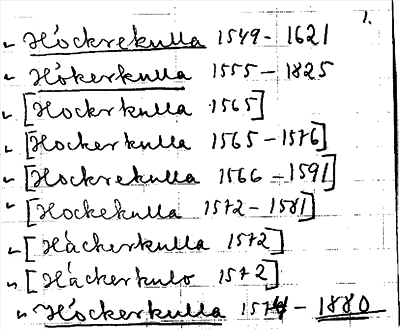 1.
" Höckrekulla 1549-1621
" Hökerkulla 1555-1825
" [Hockrkulla 1565]
" [Hockerkulla 1565-1576]
" [Hockrekulla 1566-1591]
" [Hockekulla 1572-1581]
" [Häckerkulla 1572]
" [Häckerkulo 1572]
" Höckerkulla 1574-1880